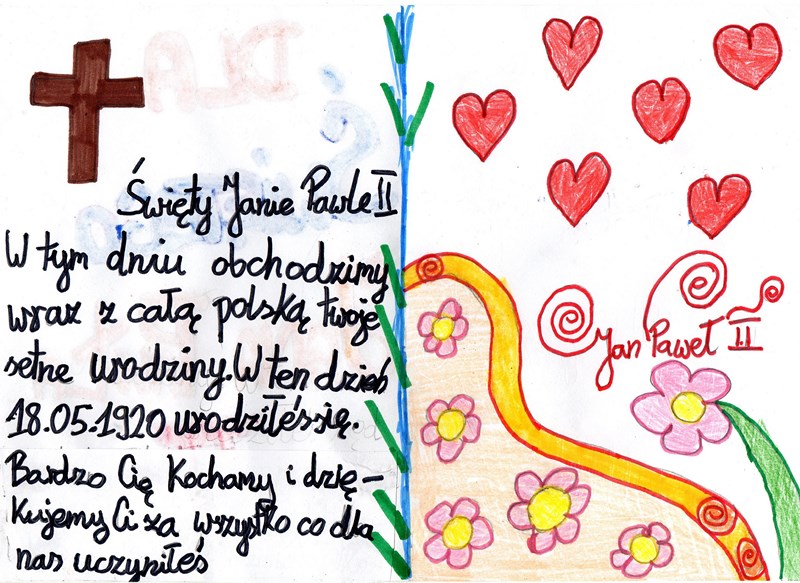 Święty Janie Pawle II
W tym dniu obchodzimy
wraz z całą polską twoje
setne urodziny. W ten dzień
18.05.1920 urodziłeś się.
Bardzo Cię Kochamy i dzię-
kujemy Ci za wszystko co dla
nas uczyniłeś
Jan Paweł II